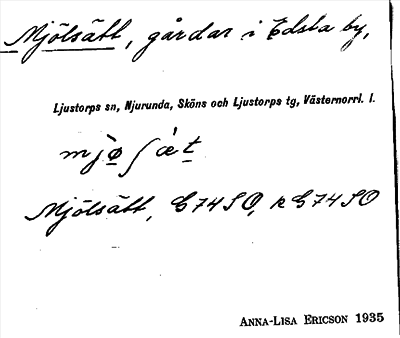 Mjölsätt, gårdar i Edsta by,
Ljustorps sn, Njurunda, Sköns och Ljustorps tg, Västernorrl. l.
Mjölsätt, G74SO, k G74SO
ANNA-LISA ERICSON 1935